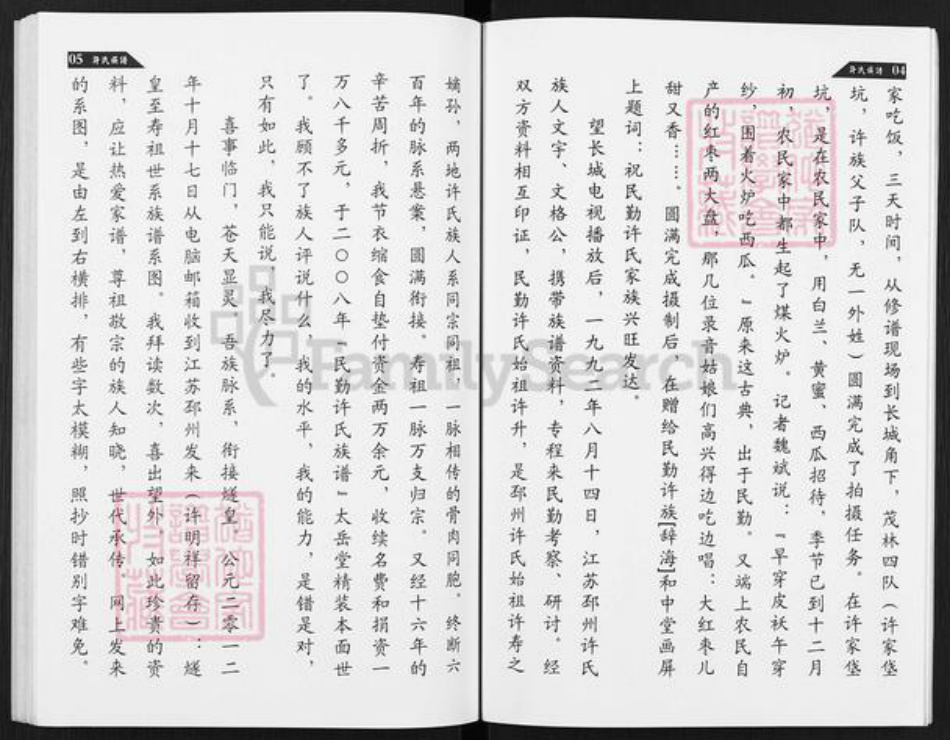 许氏族谱 04
家吃饭，三天时间，从修谱现场到长城角下，茂林四队（许家垡
坑，许族父子队，无一外姓）圆满完成了拍摄任务。在许家垡
坑，是在农民家中，用白兰、黄蜜、西瓜招待，季节已到十二月
初，农民家中都生起了煤火炉。记者魏斌说：『早穿皮袄午穿
纱，围着火炉吃西瓜。』原来这古典，出于民勤。又端上农民自
产的红枣两大盘，那几位录音姑娘们高兴得边吃边唱：大红枣儿
甜又香……。圆满完成摄制后，在赠给民勤许族[辞海]和中堂画屏
上题词：祝民勤许氏家族兴旺发达。
望长城电视播放后，一九九二年八月十四日，江苏邳州许氏
族人文宇、文格公，携带族谱资料，专程来民勤考察、研讨。经
双方资料相互印证，民勤许氏始祖许升，是邳州许氏始祖许寿之
05 许氏族谱
嫡孙，两地许氏族人系同宗同祖，一脉相传的骨肉同胞。终断六
百年的脉系悬案，圆满衔接。寿祖一脉万支归宗。又经十六年的
辛苦周折，我节衣缩食自垫付资金两万余元，收续名费和捐资一
万八千多元，于二〇〇八年『民勤许氏族谱』太岳堂精装本面世
了。我顾不了族人评说什么，我的水平，我的能力，是错是对，
只有如此，我只能说，我尽力了。
喜事临门，苍天显灵，吾族脉系，衔接燧皇。公元二零一二
年十月十七日从电脑邮箱收到江苏邳州发来（许明祥留存）：燧
皇至寿祖世系族谱系图。我拜读数次，喜出望外，如此珍贵的资
料，应让热爱家谱，尊祖敬宗的族人知晓，世代承传。网上发来
的系图，是由左到右横排，有些字太模糊，照抄时错别字难免。
FamilySearch